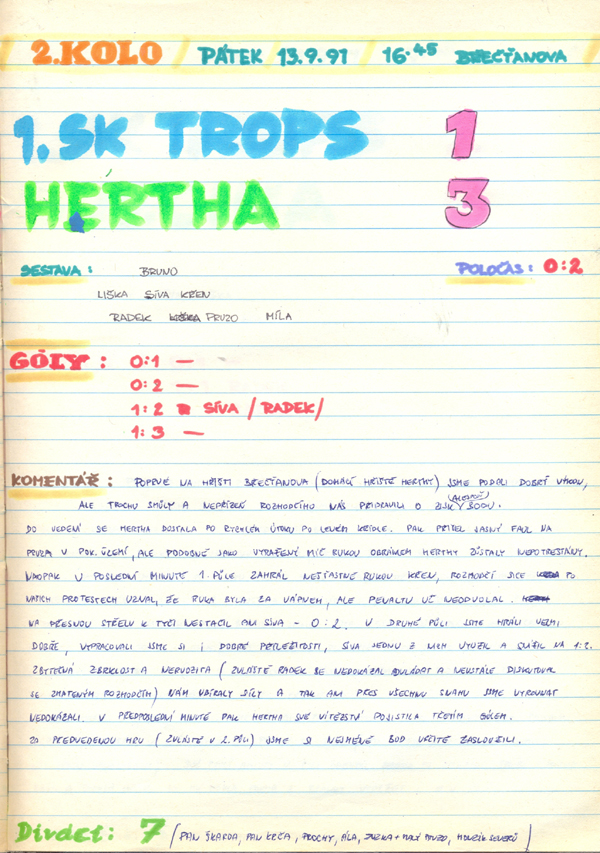 2. KOLO / PÁTEK 13.9.91 / 16.45 BŘEČŤANOVA
1. SK TROPS 1
HERTHA 3
SESTAVA: BRUNO POLOČAS: 0:2
LIŠKA SÍVA KŘEN
RADEK PRUZO MÍLA
GÓLY: 0:1 —
0:2 —
1:2 SÍVA /RADEK/
1:3 —
KOMENTÁŘ: POPRVÉ NA HŘIŠTI BŘEČŤANOVA (DOMÁCÍ HŘIŠTĚ HERTHY) JSME PODALI DOBRÝ VÝKON,
ALE TROCHU SMŮLY A NEPŘÍZEŇ ROZHODČÍHO NÁS PŘIPRAVILI O ZISK (ALESPOŇ) BODU.
DO VEDENÍ SE HERTHA DOSTALA PO RYCHLÉM ÚTOKU PO LEVÉM KŘÍDLE. PAK PŘIŠEL JASNÝ FAUL NA
PRUZA V POK. ÚZEMÍ, ALE PODOBNĚ JAKO VYRAŽENÝ MÍČ RUKOU OBRÁNCEM HERTHY ZŮSTALY NEPOTRESTÁNY.
NAOPAK V POSLEDNÍ MINUTĚ 1. PŮLE ZAHRÁL NEŠŤASTNĚ RUKOU KŘEN, ROZHODČÍ SICE PO
NAŠICH PROTESTECH UZNAL, ŽE RUKA BYLA ZA VÁPNEM, ALE PENALTU UŽ NEODVOLAL.
NA PŘESNOU STŘELU K TYČI NESTAČIL ANI SÍVA - 0:2. V DRUHÉ PŮLI JSME HRÁLI VELMI
DOBŘE, VYPRACOVALI JSME SI I DOBRÉ PŘÍLEŽITOSTI, SÍVA JEDNU Z NICH VYUŽIL A SNÍŽIL NA 1:2.
ZBYTEČNÁ ZBRKLOST A NERVOZITA (ZVLÁŠTĚ RADEK SE NEDOKÁZAL OVLÁDAT A NEUSTÁLE DISKUTOVAL
SE ZMATENÝM ROZHODČÍM) NÁM UBÍRALY SÍLY A TAK ANI PŘES VŠECHNU SNAHU JSME VYROVNAT
NEDOKÁZALI. V PŘEDPOSLEDNÍ MINUTĚ PAK HERTHA SVÉ VÍTĚZSTVÍ POJISTILA TŘETÍM GÓLEM.
ZA PŘEDVEDENOU HRU (ZVLÁŠTĚ V 2. PŮLI) JSME SI NEJMÉNĚ BOD URČITĚ ZASLOUŽILI.
Diváci: 7 (PAN ŠKARDA, PAN KRČA, PROCHY, ÁLA, + MALÝ PRUZO, HONZÍK)